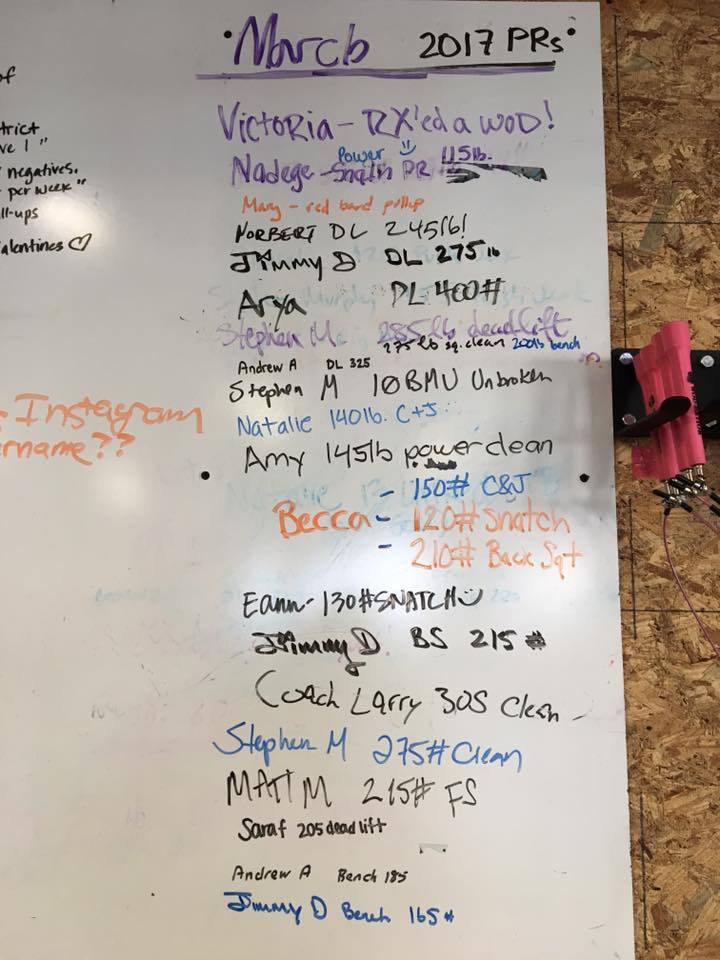 of
trict
ve 1"
negatives.
per week"
ll-ups
alentines ♡
Instagram
ername??
• March 2017 PRs •
Victoria - RX'ed a WOD!
Nadege - Power Snatch PR 115lb.
Mary - red band pullup
NORBERT DL 245lb!
Jimmy D DL 275 lb
Arya DL 400#
Stephen M 285lb deadlift
275 lb sq. clean 200lb bench
Andrew A DL 325
Stephen M 10 BMU Unbroken
Natalie 140lb. C+J
Amy 145lb power clean
- 150# C&J
Becca - 120# Snatch
- 210# Back Sqt
Eann - 130# SNATCH
Jimmy D BS 215 #
Coach Larry 305 Clean
Stephen M 275# Clean
MATT M 215# FS
Saraf 205 deadlift
Andrew A Bench 185
Jimmy D Bench 165 #